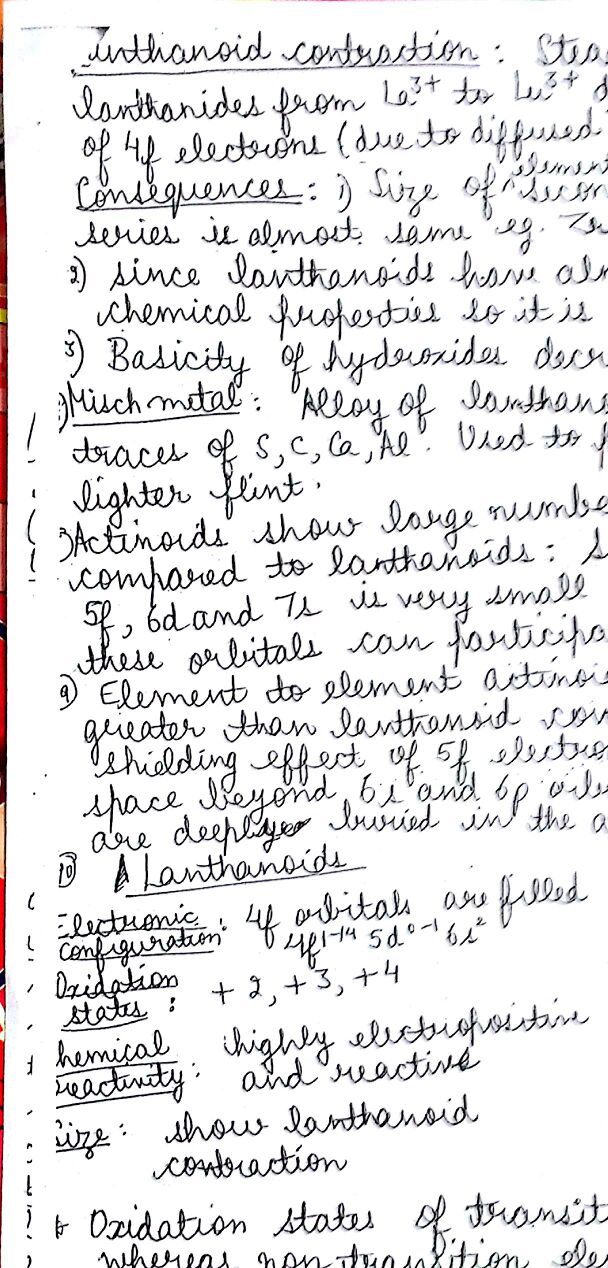 anthanoid contraction : Stea
lanthanides from La³⁺ to Lu³⁺ d
of 4f electrons (due to diffused
element
Consequences : 1) Size of ^ secon
series is almost same eg. Zr
2) since lanthanoids have alm
chemical properties so it is
3) Basicity of hydroxides decr
Misch metal : Alloy of lanthan
traces of S, C, Ca, Al . Used to p
lighter flint .
Actinoids show large numbe
compared to lanthanoids : S
5f, 6d and 7s is very small
these orbitals can participa
9) Element to element actinoi
greater than lanthanoid con
shielding effect of 5f electro
space beyond 6s and 6p orbi
are deeply buried in the a
10) Lanthanoids
Electronic configuration : 4f orbitals are filled
4f¹⁻¹⁴ 5d⁰⁻¹ 6s²
Oxidation states : +2, +3, +4
hemical reactivity : highly electropositive
and reactive
Size : show lanthanoid
contraction
Oxidation states of transit
whereas non transition ele